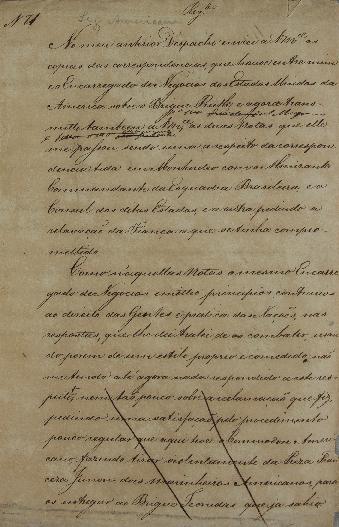 Nº 71
Leg. Americana
Reg.do
No meu anterior Despacho enviei a V.Mce as
copias das correspondencias que houve entre mim
e o Encarregado dos Negocios dos Estados Unidos da
America sobre o Brigue Ruth, e agora trans-
mitto tambem a V.Mce as duas Notas que elle
me passou, sendo uma a respeito da correspon-
dencia tida com o Almirante
Commandante da Esquadra Brasileira, e o
Consul dos ditos Estados, e a outra pedindo a
relaxação da fiança a que se tinha compro-
mettido.
Como naquellas Notas o mesmo Encarre-
gado de Negocios emittio principios contrarios
ao direito das Gentes e pratica das Nações, nas
respostas, que lhe dei tratei de os combater, usan-
do porem de um estylo proprio e comedido, não
me tendo até agora nada respondido a este res-
peito, nem tão pouco sobre a reclamação que fiz,
pedindo uma satisfação pelo procedimento
pouco regular que aqui teve o Commodoro Ameri-
cano, fazendo tirar violentamente da Preza
dous marinheiros Americanos, para
os entregar ao Brigue que ja sahio